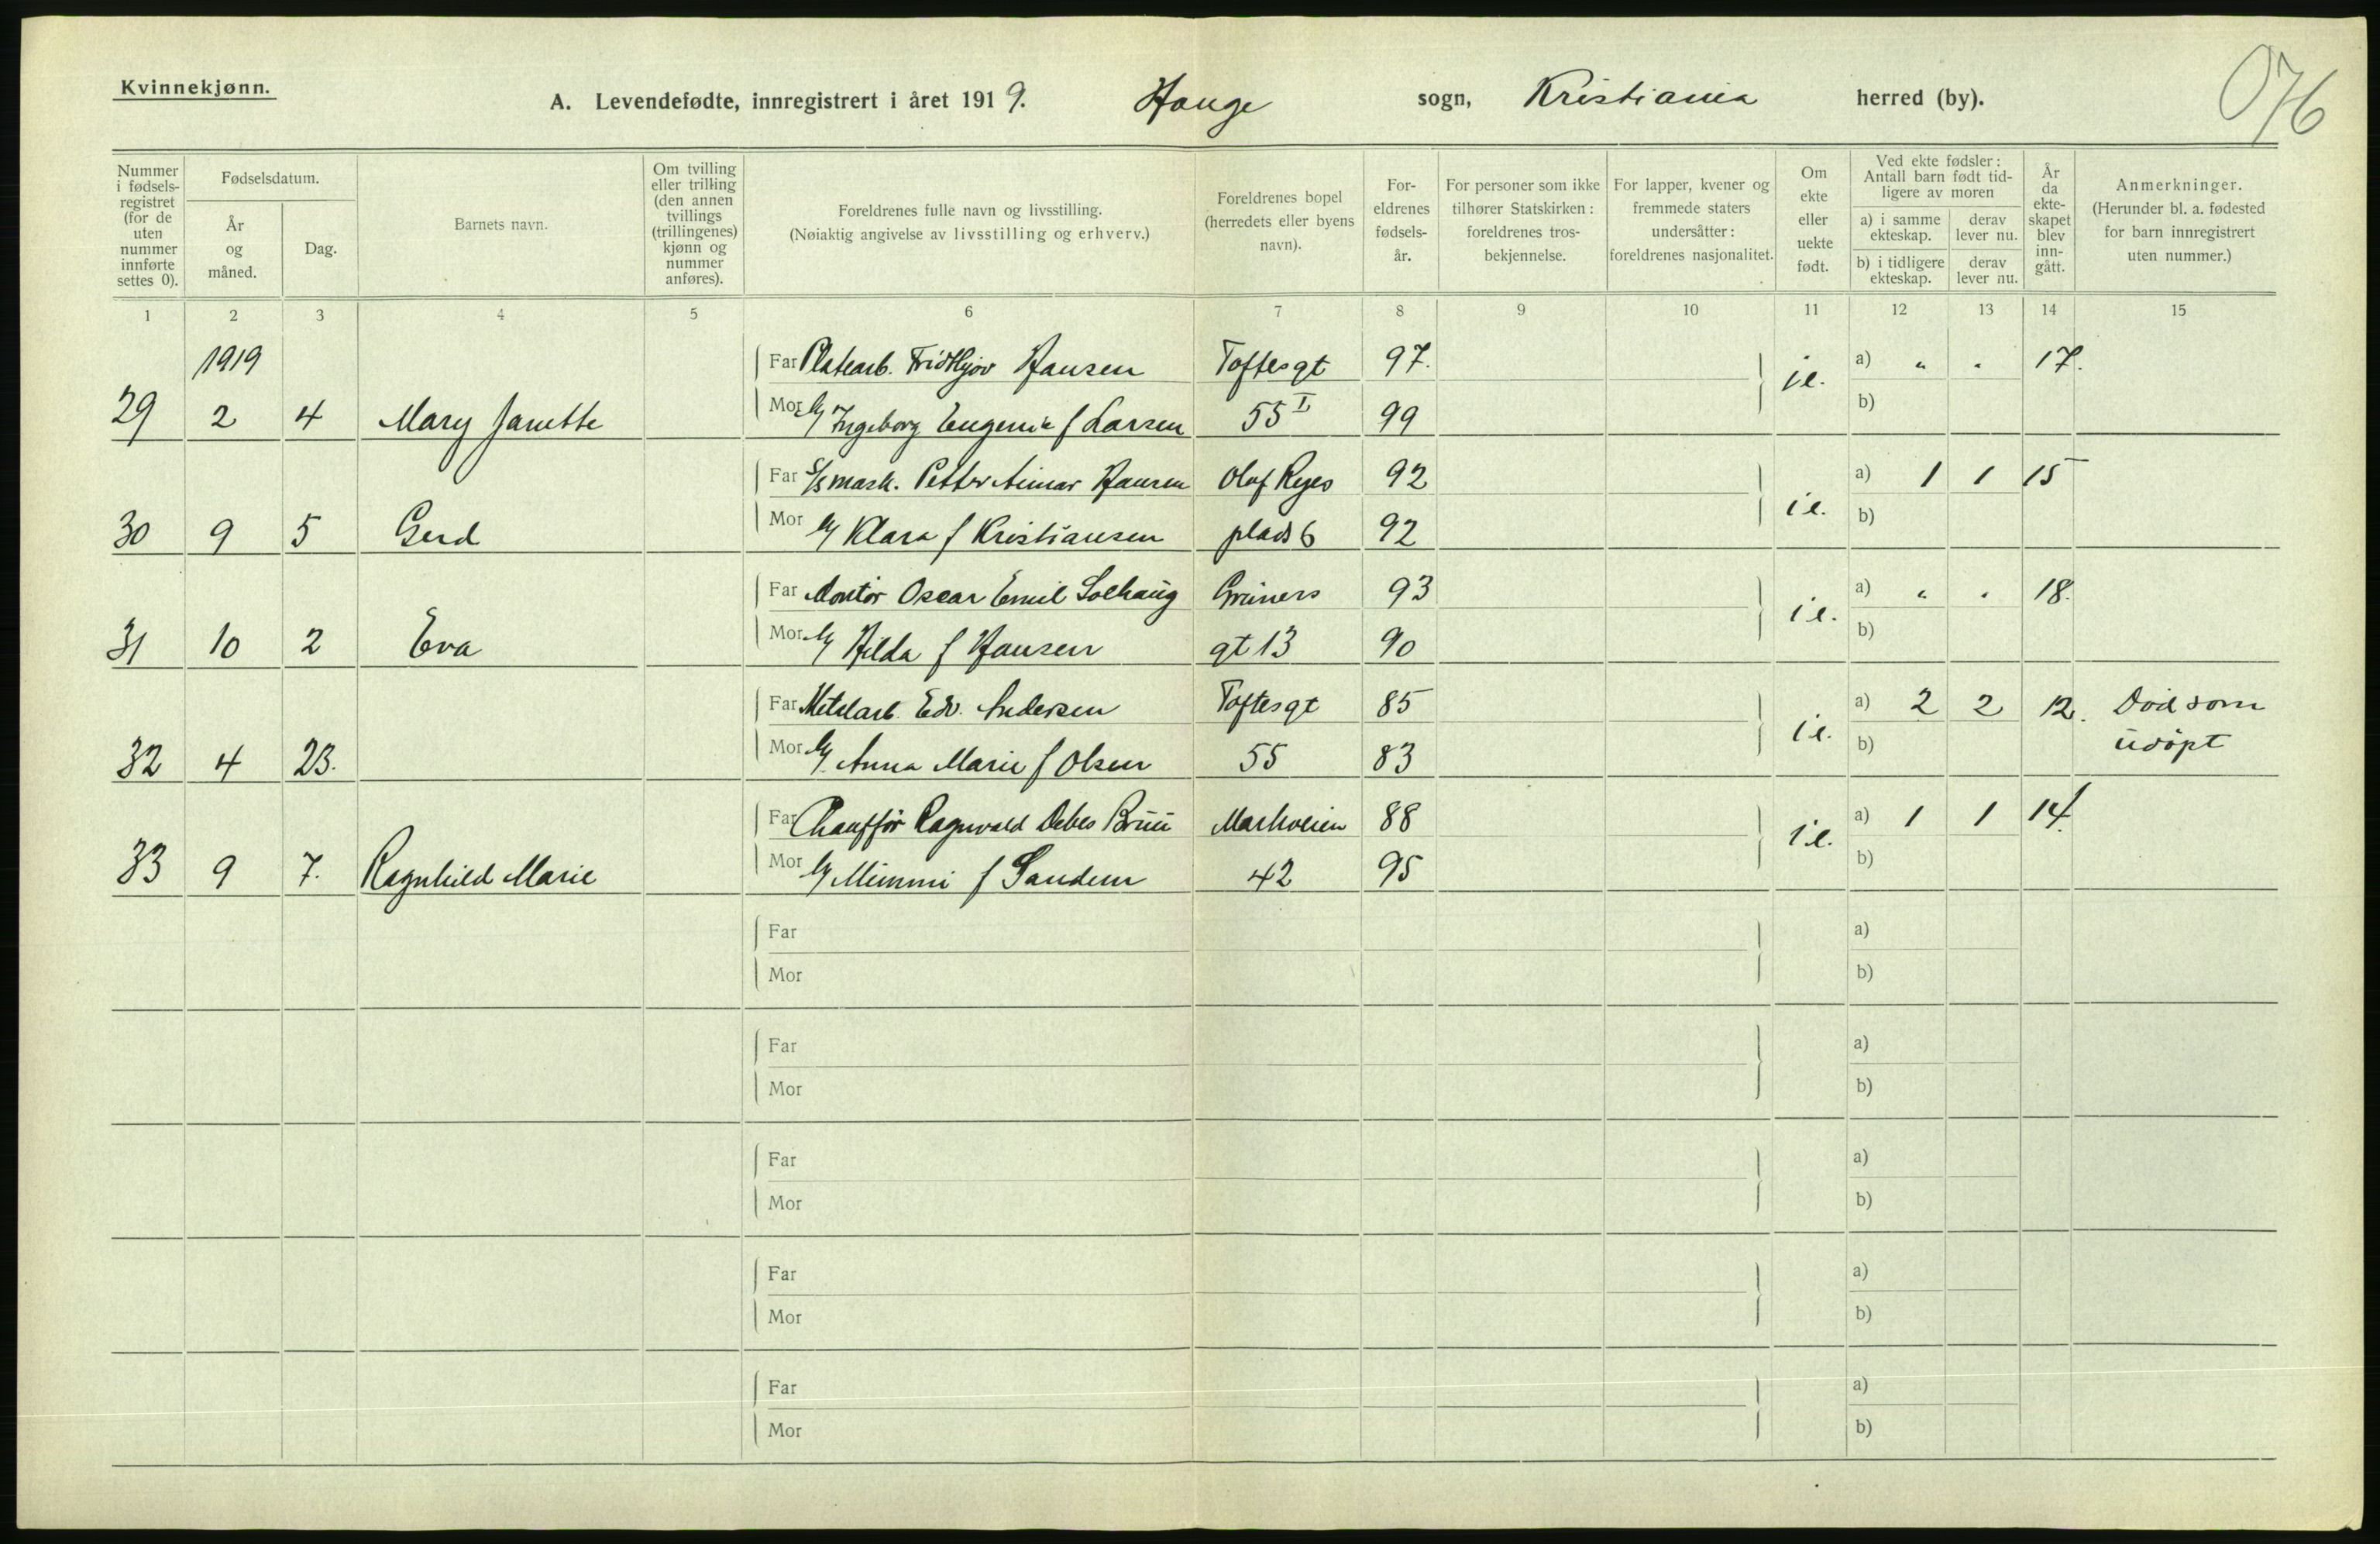 Kvinnekjønn.
A. Levendefødte, innregistrert i året 1919. Hauge sogn, Kristiania herred (by).
076
Nummer i fødsels-registret (for de uten nummer innførte settes 0).
Fødselsdatum.
År og måned.
Dag.
Barnets navn.
Om tvilling eller trilling (den annen tvillings (trillingenes) kjønn og nummer anføres).
Foreldrenes fulle navn og livsstilling.
(Nøiaktig angivelse av livsstilling og erhverv.)
Foreldrenes bopel (herredets eller byens navn).
For-eldrenes fødsels-år.
For personer som ikke tilhører Statskirken: foreldrenes tros-bekjennelse.
For lapper, kvener og fremmede staters undersåtter: foreldrenes nasjonalitet.
Om ekte eller uekte født.
Ved ekte fødsler: Antall barn født tid-ligere av moren
a) i samme ekteskap.
derav lever nu.
b) i tidligere ekteskap.
derav lever nu.
År da ekte-skapet blev inn-gått.
Anmerkninger.
(Herunder bl. a. fødested for barn innregistrert uten nummer.)
1 2 3 4 5 6 7 8 9 10 11 12 13 14 15
1919 Far Platearb. Fridtjov Hansen Toftesgt 97. i e. a) " " 17.
29 2 4 Mary Janette Mor Ingeborg Eugenie f Larsen 55 I 99 b)
Far mask. Petter Hansen Olaf Ryes 92 i e. a) 1 1 15
30 9 5 Gerd Mor Klara f Kristiansen plads 6 92 b)
Far Montør Oscar Emil Solhaug Grüners 93 i e. a) " " 18.
31 10 2 Eva Mor Hilda f Hansen gt 13 90 b)
Far Metalarb. Edv. Andersen Toftesgt 85 i e. a) 2 2 12. Død som
32 4 23. Mor Anna Marie f Olsen 55 83 b) udöpt
Far Chauffør Ragnvald Debes Bruu Markveien 88 i e. a) 1 1 14.
33 9 7. Ragnhild Marie Mor Mimmi f Sandem 42 95 b)
Far a)
Mor b)
Far a)
Mor b)
Far a)
Mor b)
Far a)
Mor b)
Far a)
Mor b)